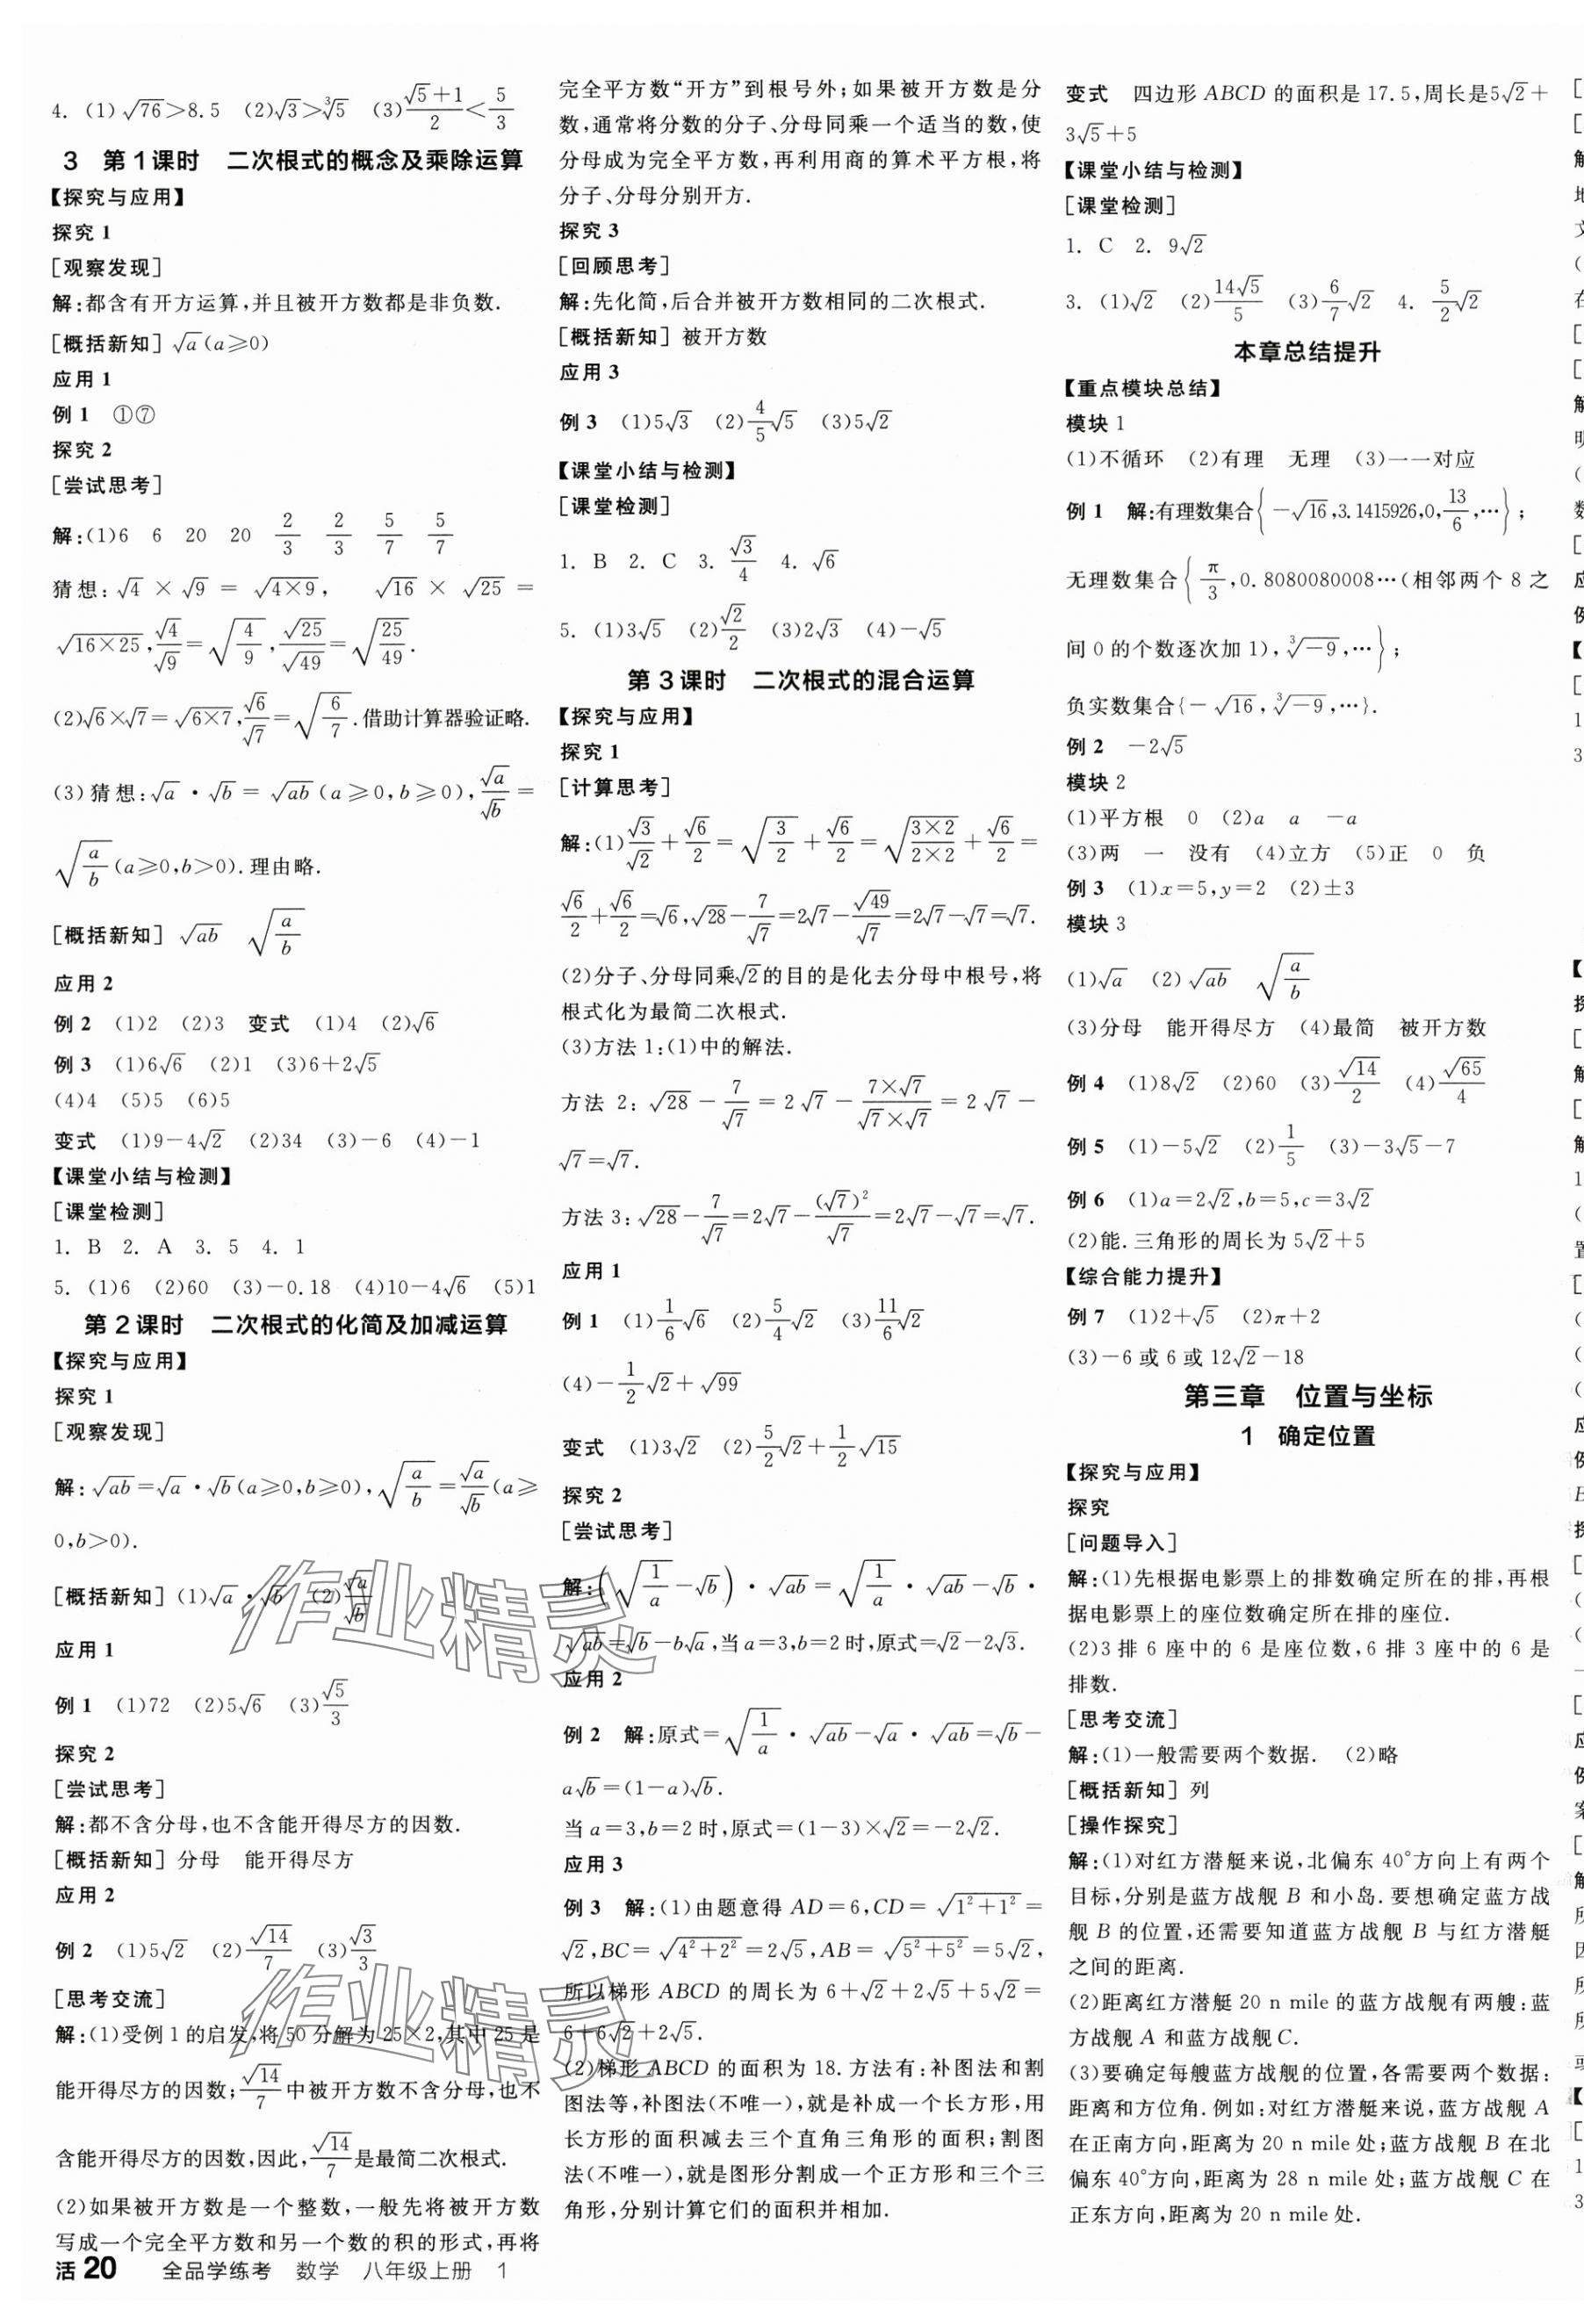 4. (1)√76>8.5 (2)√3>∛5 (3)(√5+1)/2<5/3
3 第1课时 二次根式的概念及乘除运算
【探究与应用】
探究1
[观察发现]
解:都含有开方运算,并且被开方数都是非负数.
[概括新知] √a(a≥0)
应用1
例1 ①⑦
探究2
[尝试思考]
解:(1)6 6 20 20 2/3 2/3 5/7 5/7
猜想:√4×√9=√(4×9), √16×√25=
√(16×25),√4/√9=√(4/9),√25/√49=√(25/49).
(2)√6×√7=√(6×7),√6/√7=√(6/7).借助计算器验证略.
(3)猜想:√a·√b=√(ab)(a≥0,b≥0),√a/√b=
√(a/b)(a≥0,b>0).理由略.
[概括新知] √(ab) √(a/b)
应用2
例2 (1)2 (2)3 变式 (1)4 (2)√6
例3 (1)6√6 (2)1 (3)6+2√5
(4)4 (5)5 (6)5
变式 (1)9-4√2 (2)34 (3)-6 (4)-1
【课堂小结与检测】
[课堂检测]
1. B 2. A 3. 5 4. 1
5. (1)6 (2)60 (3)-0.18 (4)10-4√6 (5)1
第2课时 二次根式的化简及加减运算
【探究与应用】
探究1
[观察发现]
解:√(ab)=√a·√b(a≥0,b≥0),√(a/b)=√a/√b(a≥
0,b>0).
[概括新知] (1)√a·√b (2)√a/√b
应用1
例1 (1)72 (2)5√6 (3)√5/3
探究2
[尝试思考]
解:都不含分母,也不含能开得尽方的因数.
[概括新知] 分母 能开得尽方
应用2
例2 (1)5√2 (2)√14/7 (3)√3/3
[思考交流]
解:(1)受例1的启发,将50分解为25×2,其中25是
能开得尽方的因数;√14/7中被开方数不含分母,也不
含能开得尽方的因数,因此,√14/7是最简二次根式.
(2)如果被开方数是一个整数,一般先将被开方数
写成一个完全平方数和另一个数的积的形式,再将
活20 全品学练考 数学 八年级上册 1
完全平方数“开方”到根号外;如果被开方数是分
数,通常将分数的分子、分母同乘一个适当的数,使
分母成为完全平方数,再利用商的算术平方根,将
分子、分母分别开方.
探究3
[回顾思考]
解:先化简,后合并被开方数相同的二次根式.
[概括新知] 被开方数
应用3
例3 (1)5√3 (2)4/5√5 (3)5√2
【课堂小结与检测】
[课堂检测]
1. B 2. C 3. √3/4 4. √6
5. (1)3√5 (2)√2/2 (3)2√3 (4)-√5
第3课时 二次根式的混合运算
【探究与应用】
探究1
[计算思考]
解:(1)√3/√2+√6/2=√(3/2)+√6/2=√((3×2)/(2×2))+√6/2=
√6/2+√6/2=√6,√28-7/√7=2√7-√49/√7=2√7-√7=√7.
(2)分子、分母同乘√2的目的是化去分母中根号,将
根式化为最简二次根式.
(3)方法1:(1)中的解法.
方法2:√28-7/√7=2√7-(7×√7)/(√7×√7)=2√7-
√7=√7.
方法3:√28-7/√7=2√7-(√7)²/√7=2√7-√7=√7.
应用1
例1 (1)1/6√6 (2)5/4√2 (3)11/6√2
(4)-1/2√2+√99
变式 (1)3√2 (2)5/2√2+1/2√15
探究2
[尝试思考]
解:(√(1/a)-√b)·√(ab)=√(1/a)·√(ab)-√b·
√(ab)=√b-b√a,当a=3,b=2时,原式=√2-2√3.
应用2
例2 解:原式=√(1/a)·√(ab)-√a·√(ab)=√b-
a√b=(1-a)√b.
当a=3,b=2时,原式=(1-3)×√2=-2√2.
应用3
例3 解:(1)由题意得AD=6,CD=√(1²+1²)=
√2,BC=√(4²+2²)=2√5,AB=√(5²+5²)=5√2,
所以梯形ABCD的周长为6+√2+2√5+5√2=
6+6√2+2√5.
(2)梯形ABCD的面积为18.方法有:补图法和割
图法等,补图法(不唯一),就是补成一个长方形,用
长方形的面积减去三个直角三角形的面积;割图
法(不唯一),就是图形分割成一个正方形和三个三
角形,分别计算它们的面积并相加.
变式 四边形ABCD的面积是17.5,周长是5√2+
3√5+5
【课堂小结与检测】
[课堂检测]
1. C 2. 9√2
3. (1)√2 (2)14√5/5 (3)6/7√2 4. 5/2√2
本章总结提升
【重点模块总结】
模块1
(1)不循环 (2)有理 无理 (3)一一对应
例1 解:有理数集合{-√16,3.1415926,0,13/6,…};
无理数集合{π/3,0.8080080008…(相邻两个8之
间0的个数逐次加1),∛-9,…};
负实数集合{-√16,∛-9,…}.
例2 -2√5
模块2
(1)平方根 0 (2)a a -a
(3)两 一 没有 (4)立方 (5)正 0 负
例3 (1)x=5,y=2 (2)±3
模块3
(1)√a (2)√(ab) √(a/b)
(3)分母 能开得尽方 (4)最简 被开方数
例4 (1)8√2 (2)60 (3)√14/2 (4)√65/4
例5 (1)-5√2 (2)1/5 (3)-3√5-7
例6 (1)a=2√2,b=5,c=3√2
(2)能.三角形的周长为5√2+5
【综合能力提升】
例7 (1)2+√5 (2)π+2
(3)-6或6或12√2-18
第三章 位置与坐标
1 确定位置
【探究与应用】
探究
[问题导入]
解:(1)先根据电影票上的排数确定所在的排,再根
据电影票上的座位数确定所在排的座位.
(2)3排6座中的6是座位数,6排3座中的6是
排数.
[思考交流]
解:(1)一般需要两个数据. (2)略
[概括新知] 列
[操作探究]
解:(1)对红方潜艇来说,北偏东40°方向上有两个
目标,分别是蓝方战舰B和小岛.要想确定蓝方战
舰B的位置,还需要知道蓝方战舰B与红方潜艇
之间的距离.
(2)距离红方潜艇20 n mile的蓝方战舰有两艘:蓝
方战舰A和蓝方战舰C.
(3)要确定每艘蓝方战舰的位置,各需要两个数据:
距离和方位角.例如:对红方潜艇来说,蓝方战舰A
在正南方向,距离为20 n mile处;蓝方战舰B在北
偏东40°方向,距离为28 n mile处;蓝方战舰C在
正东方向,距离为20 n mile处.
作业精灵
作业精灵